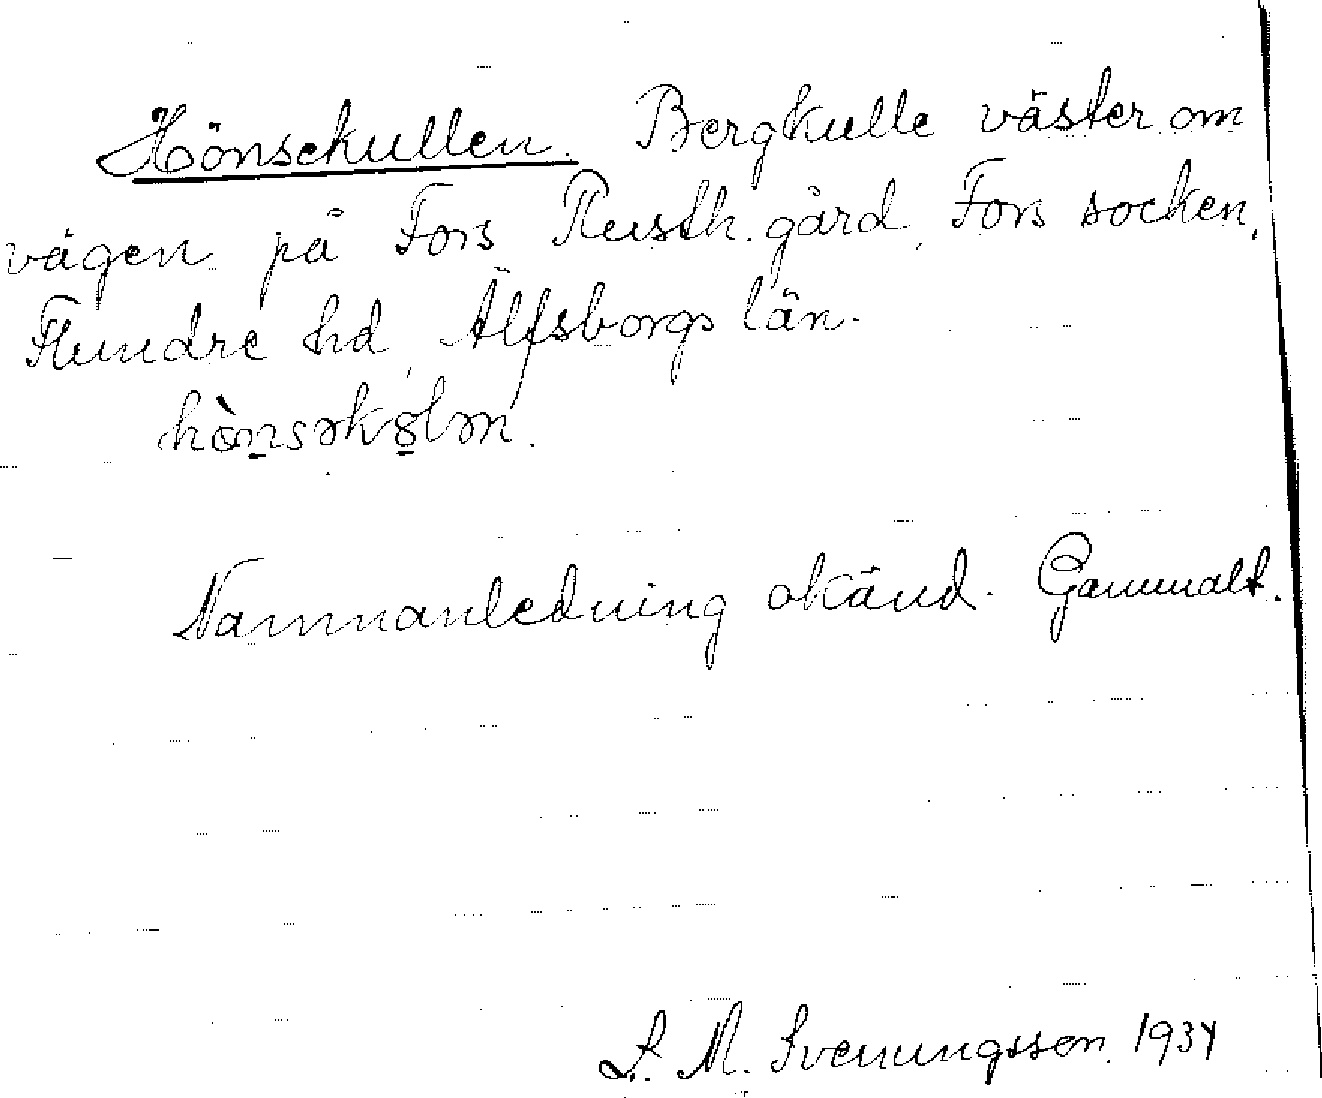 Hönsekullen. Bergkulle väster om
vägen på Fors Rusth. gård, Fors socken,
Flundre hd, Älfsborgs län.
hònsəkɵlən.
Namnanledning okänd. Gammalt.
S. M. Svenungsson 1934